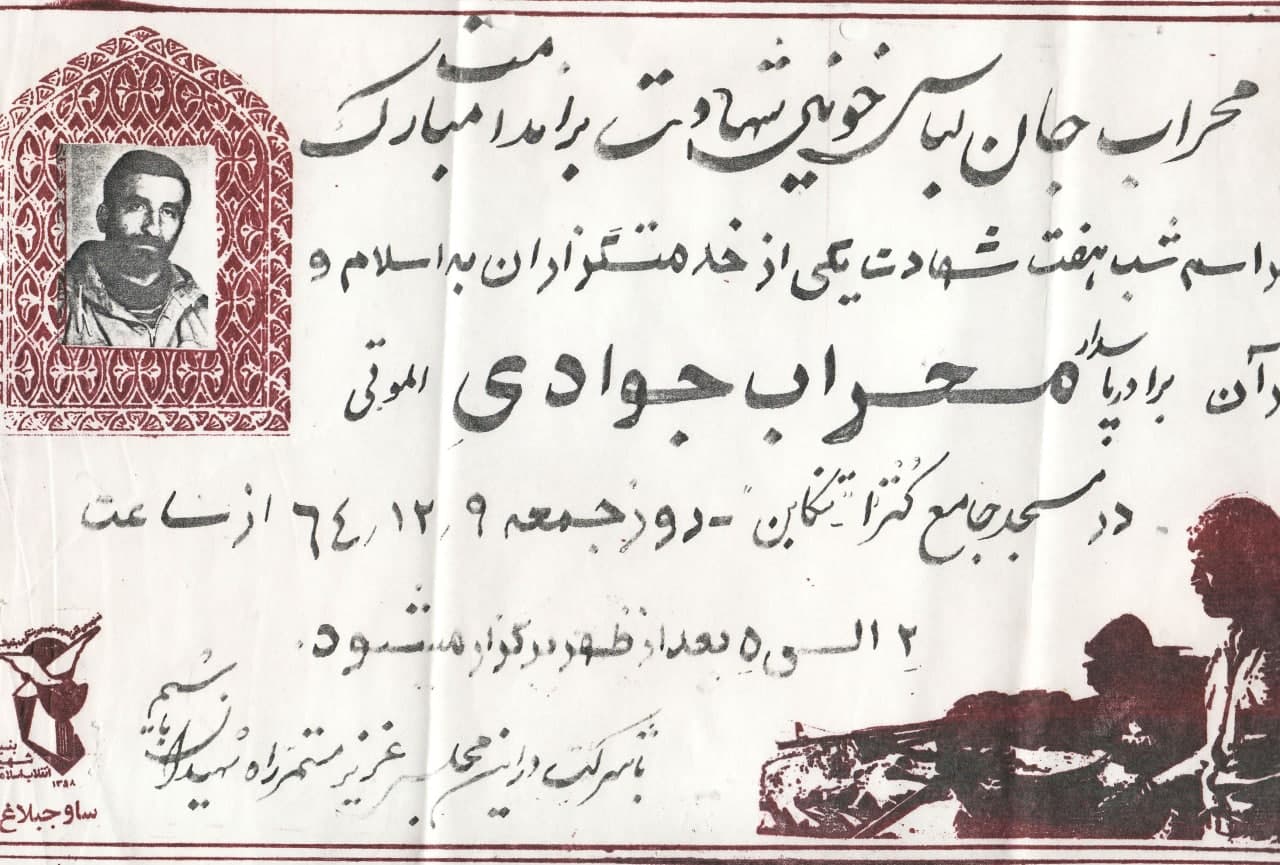 محراب جان لباس خونین شهادت بر اندامت مبارک
راسم شب هفت شهادت یکی از خدمتگزاران به اسلام و
رآن برادر پاسدار محراب جوادی الموتی
در مسجد جامع تنکابن - روز جمعه ۶۴٫۱۲٫۹ از ساعت
۲ الی ۵ بعد از ظهر برگزار میشود.
با شرکت در این مجلس عزیز مستمر راه شهیدان باشیم
بنی
شهی
انقلاب اسلام
۱۳۵۸
ساوجبلاغ